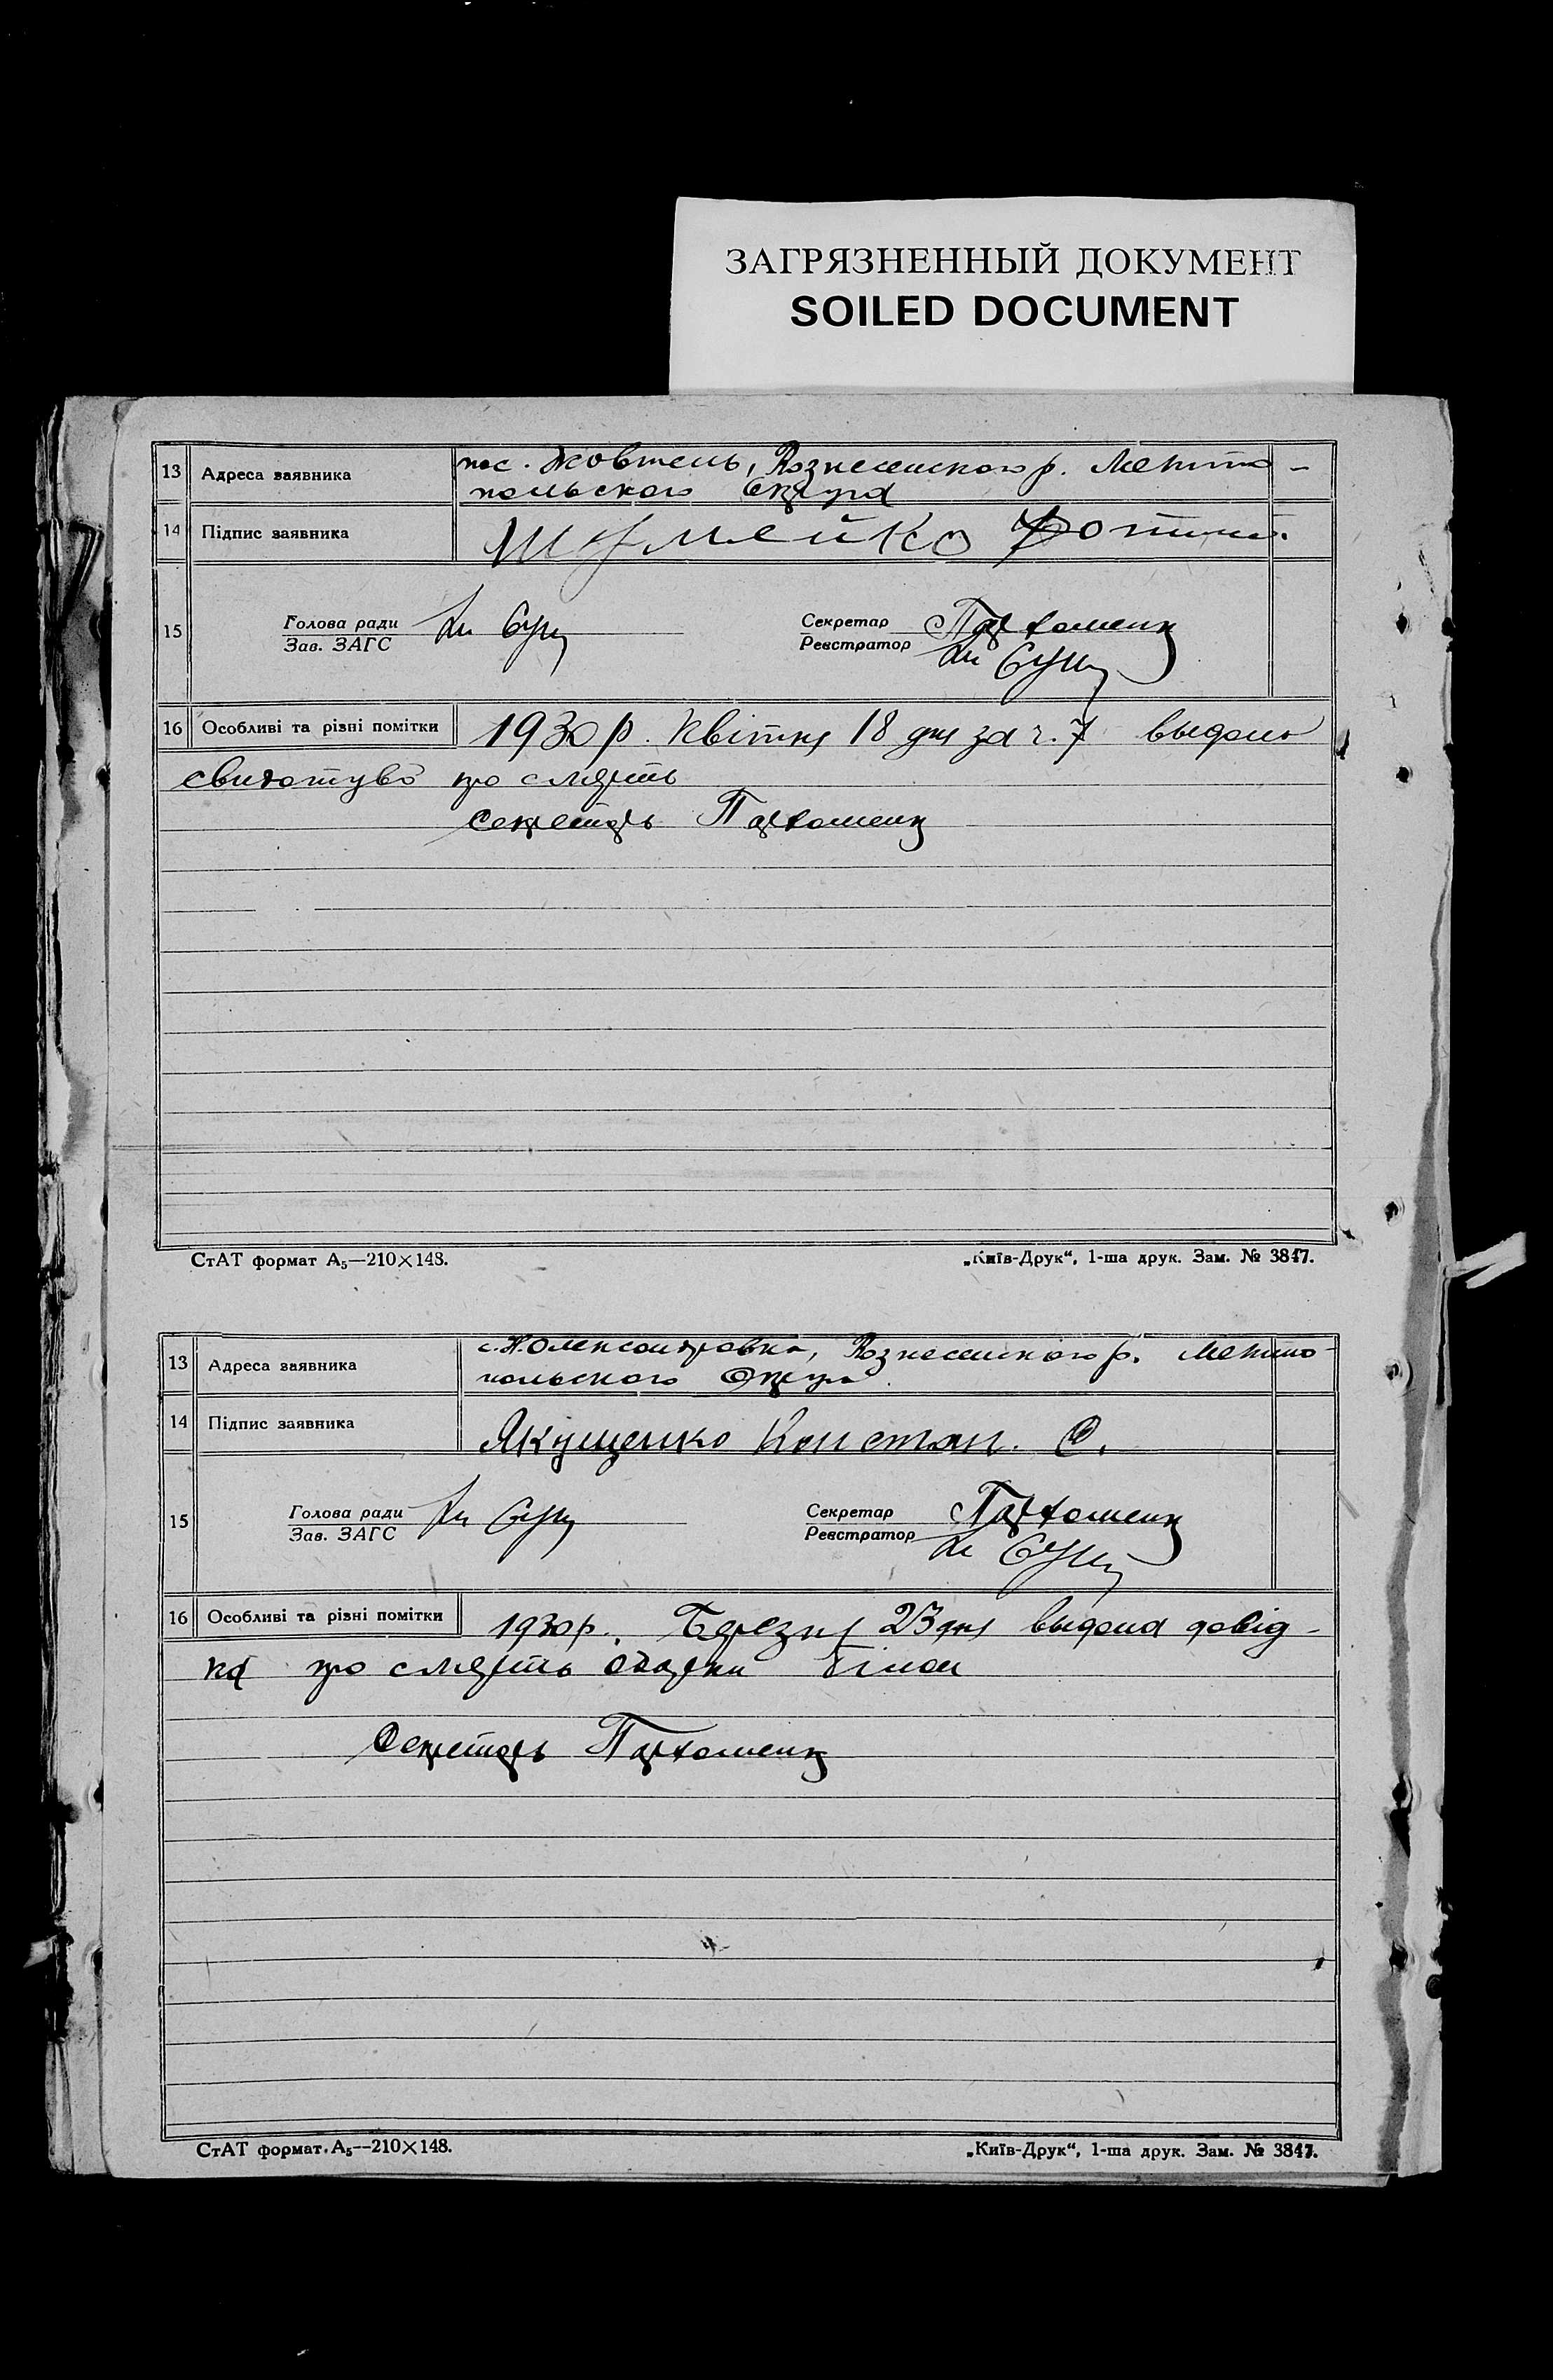 ЗАГРЯЗНЕННЫЙ ДОКУМЕНТ
SOILED DOCUMENT
13 Адреса заявника пос. Жовтень, Вознесенского р. Мелито-
польского Округа
14 Підпис заявника Шумейко Фотин.
15 Голова ради Секретар Пархоменк
Зав. ЗАГС Реєстратор
16 Особливі та різні помітки 1930 р. Квітня 18 дня за ч. 7 выдано
свидотство про смерть
Секретарь Пархоменк
СтАТ формат А₅—210×148. „Київ-Друк“, 1-ша друк. Зам. № 3847.
13 Адреса заявника с. Н. Олександровка, Вознесенского р. Мелито-
польского Округа
14 Підпис заявника Якущенко Констан. С.
15 Голова ради Секретар Пархоменк
Зав. ЗАГС Реєстратор
16 Особливі та різні помітки 1930 р. Березня 23 дня выдана довід-
ка про смерть
Секретарь Пархоменк
СтАТ формат А₅—210×148. „Київ-Друк“, 1-ша друк. Зам. № 3847.